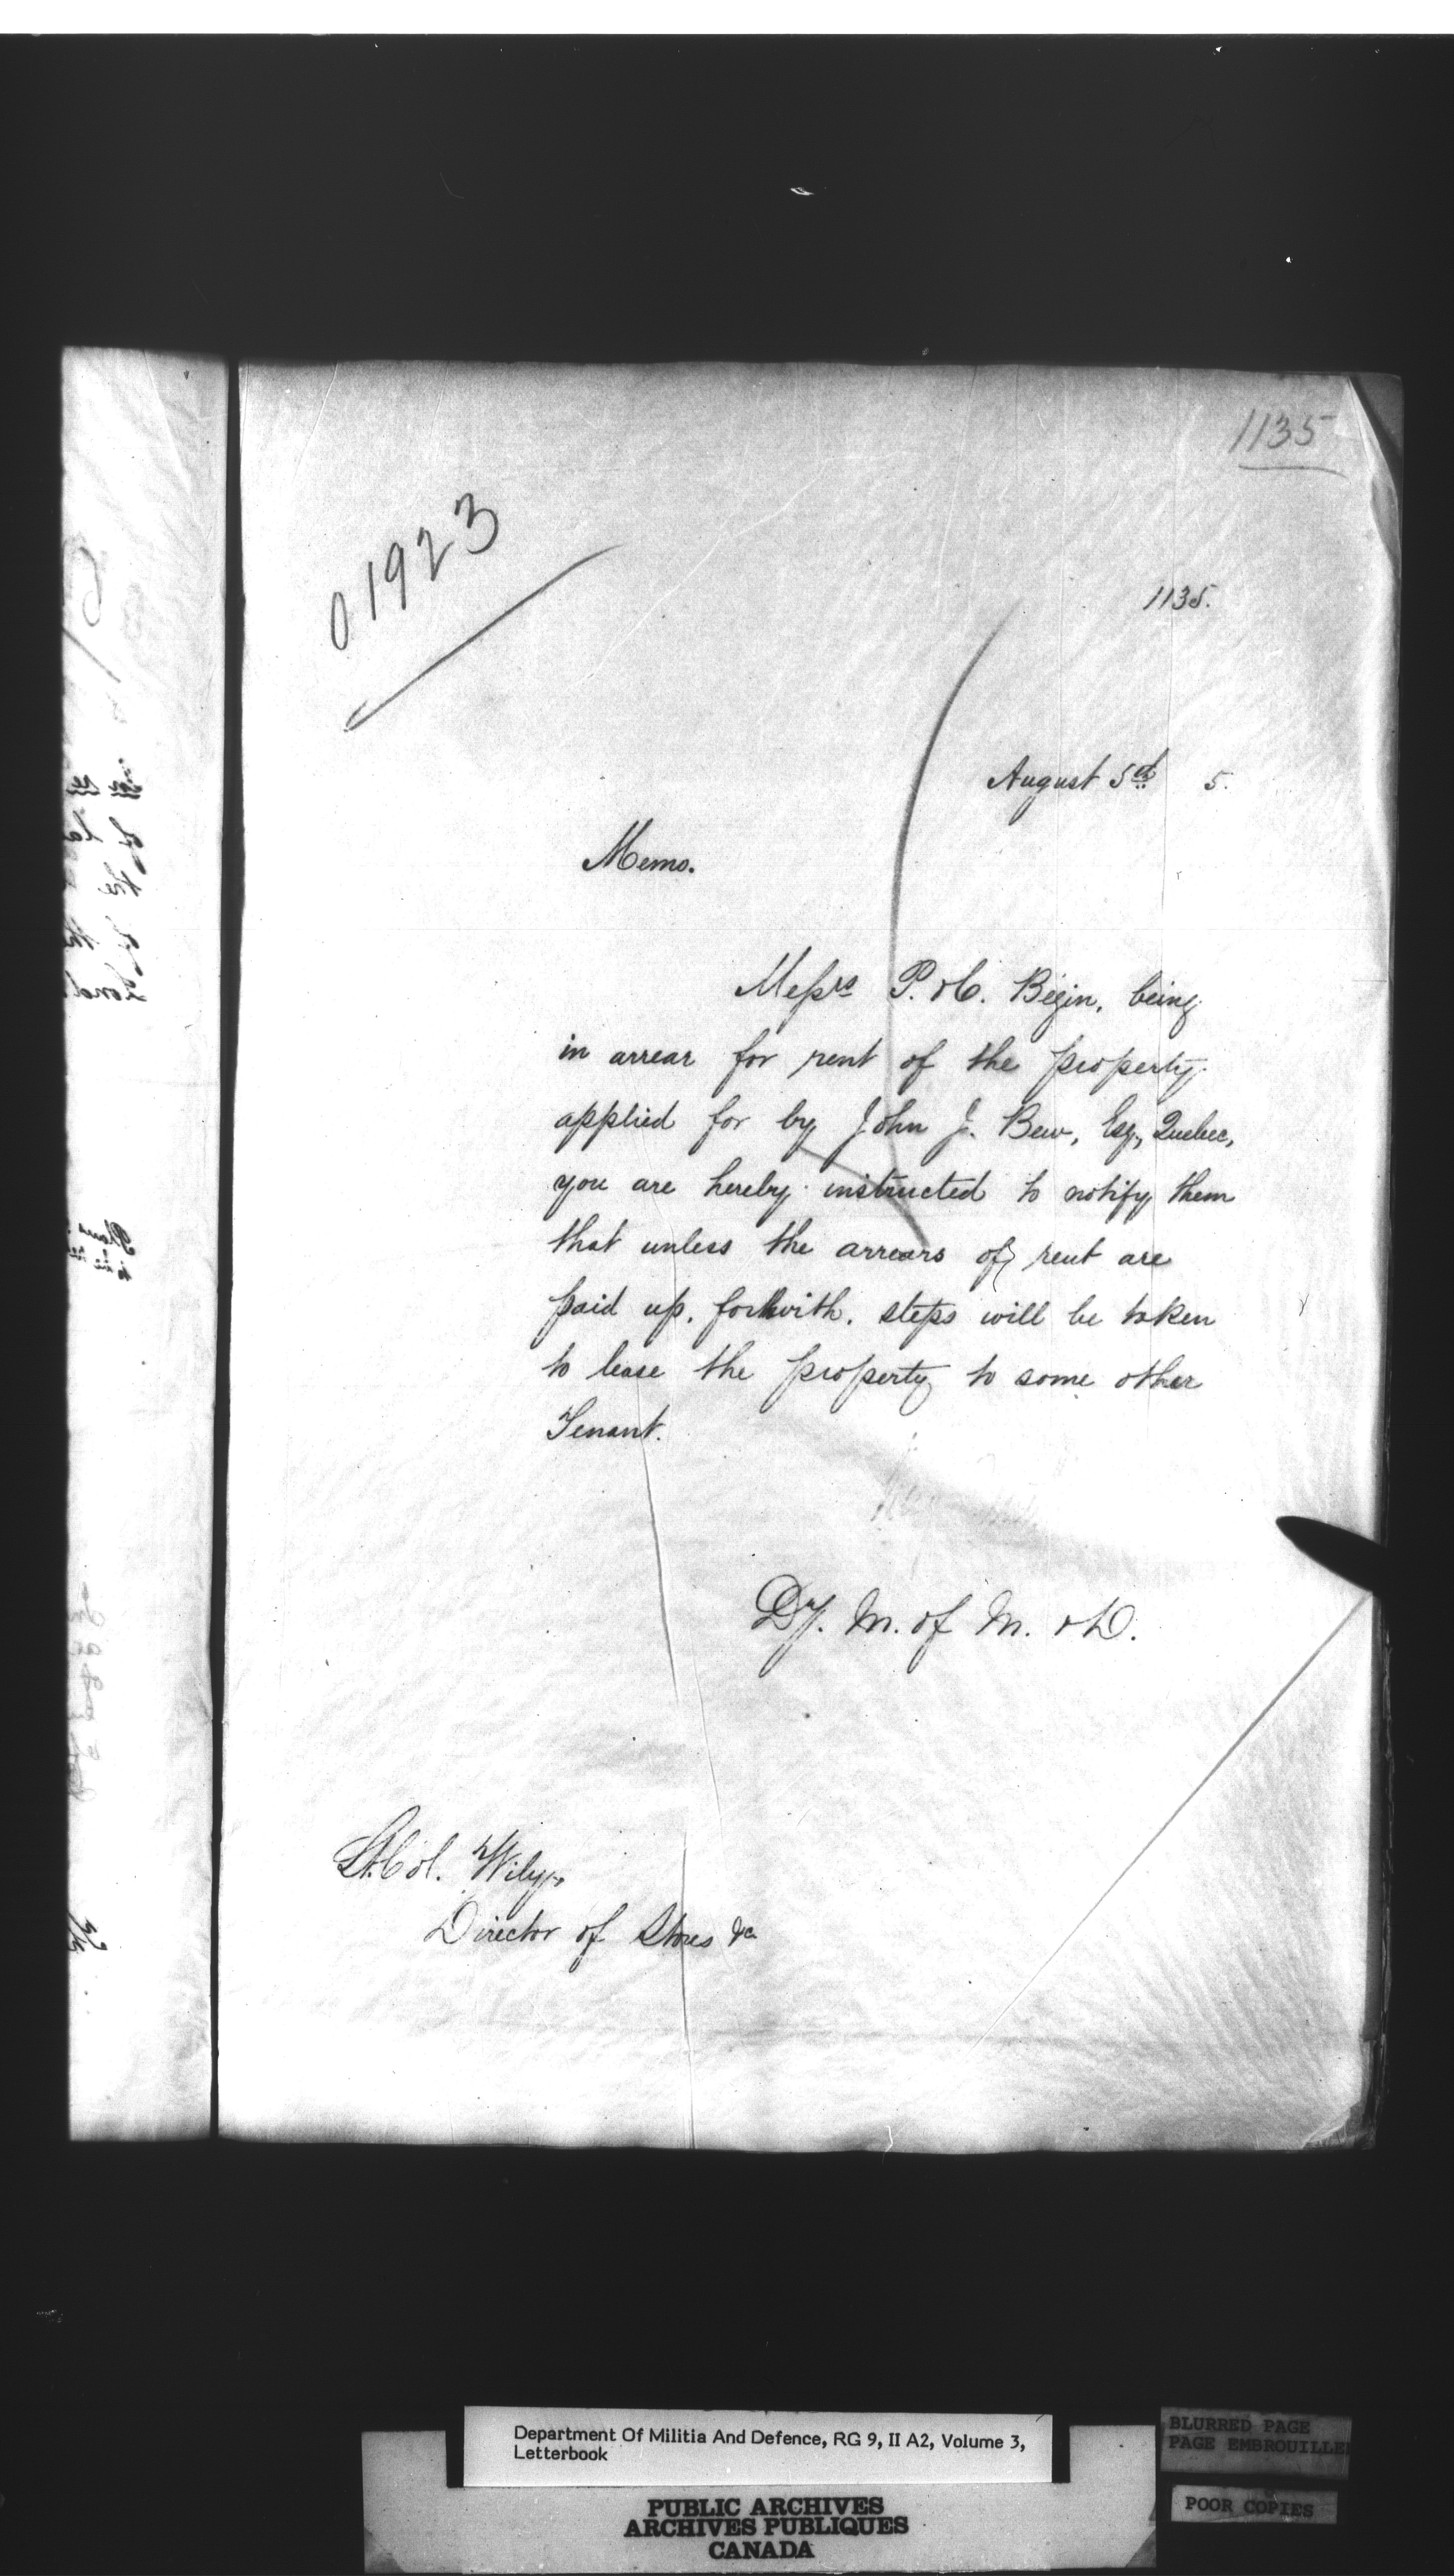 1135
01923
1135.
August 5th 5.
Memo.
Messrs P. & C. Begin, being
in arrear for rent of the property
applied for by John J. Bew, Esq., Quebec,
you are hereby instructed to notify them
that unless the arrears of rent are
paid up, forthwith, steps will be taken
to lease the property to some other
Tenant.
Dy. M. of M. & D.
Lt. Col. Wily,
Director of Stores &c
Department Of Militia And Defence, RG 9, II A2, Volume 3,
Letterbook
BLURRED PAGE
PAGE EMBROUILLEE
POOR COPIES
PUBLIC ARCHIVES
ARCHIVES PUBLIQUES
CANADA